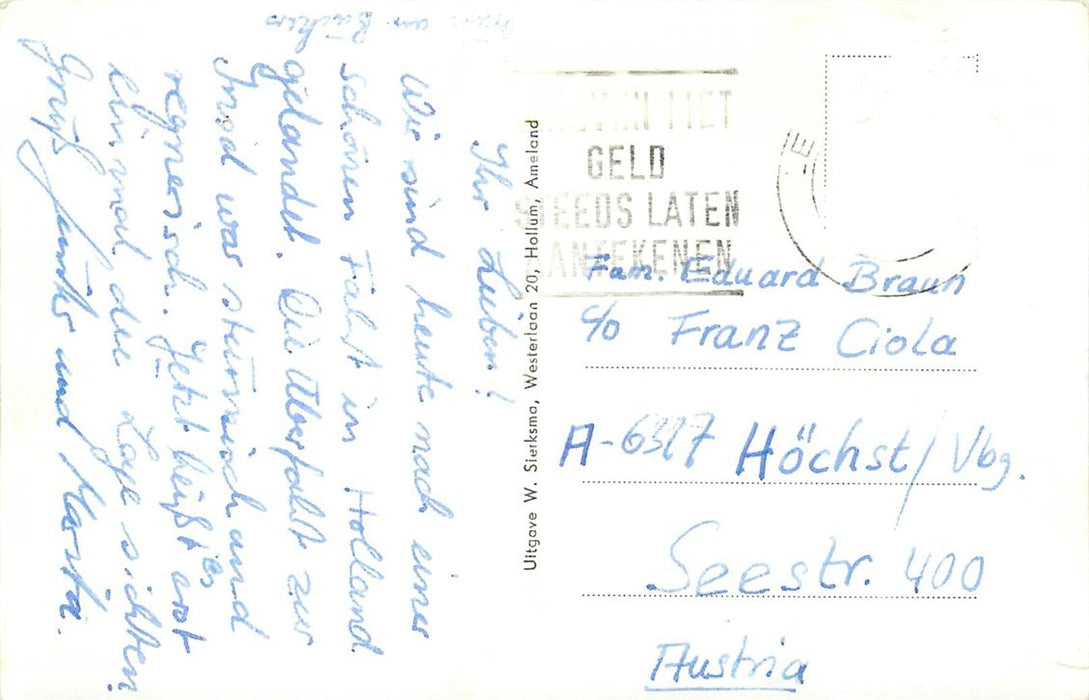 Ihr Lieben!
Wir sind heute nach einer
schönen Fahrt in Holland
gelandet. Die Überfahrt zur
Insel war stürmisch und
regnerisch. Jetzt heißt es erst
einmal die Lage sichten.
Gruß und Marta.
Uitgave W. Sierksma, Westerlaan 20, Hollum, Ameland
GELD
STEEDS LATEN
AANTEKENEN
Fam. Eduard Braun
c/o Franz Ciola
A-6317 Höchst/Vbg.
Seestr. 400
Austria